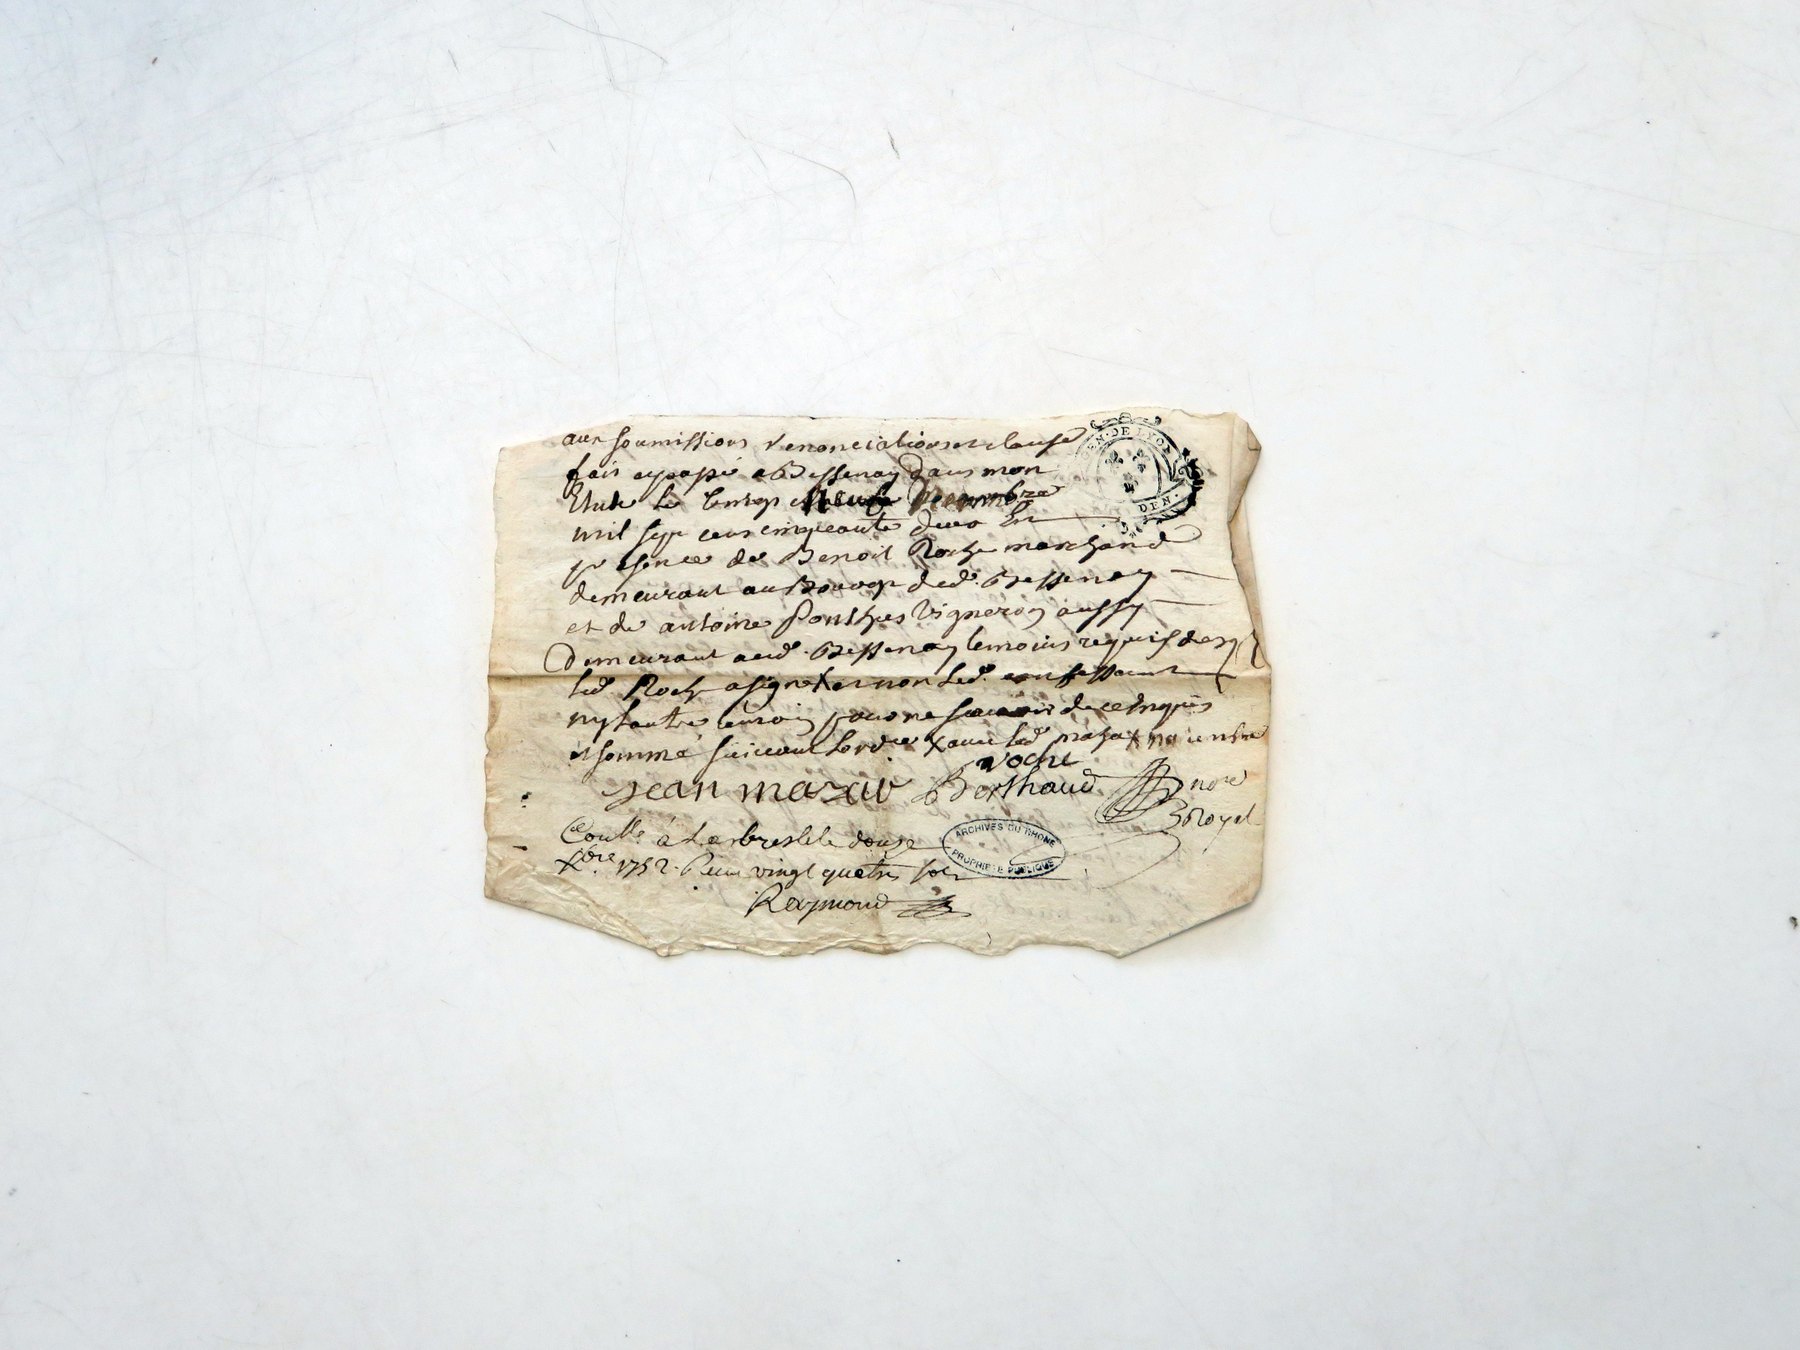 aux soumissions renonciations et clause
fait et passé a Bessenay dans mon
Etude le neuf Decembre
mil sept cens cinquante deux En
presence de Benoit Roche marchand
demeurant au Bourg dud. Bessenay
et de antoine Ponthus Vigneron aussy
Demeurant aud. Bessenay temoins requis desq
led. Roche a signé X et non led. confessant
ny lautre temoin pour ne scavoir de ce Enquis
et sommé suivant lordce X avec led. mazar X
roche
jean mazar Berthaud nore
Royal
Conllé à Larbresle le douze
Xbre 1752. Reçu vingt quatre sols
Raymond
GEN·DE LYON
DEN.
ARCHIVES DU RHONE
PROPRIETE PUBLIQUE